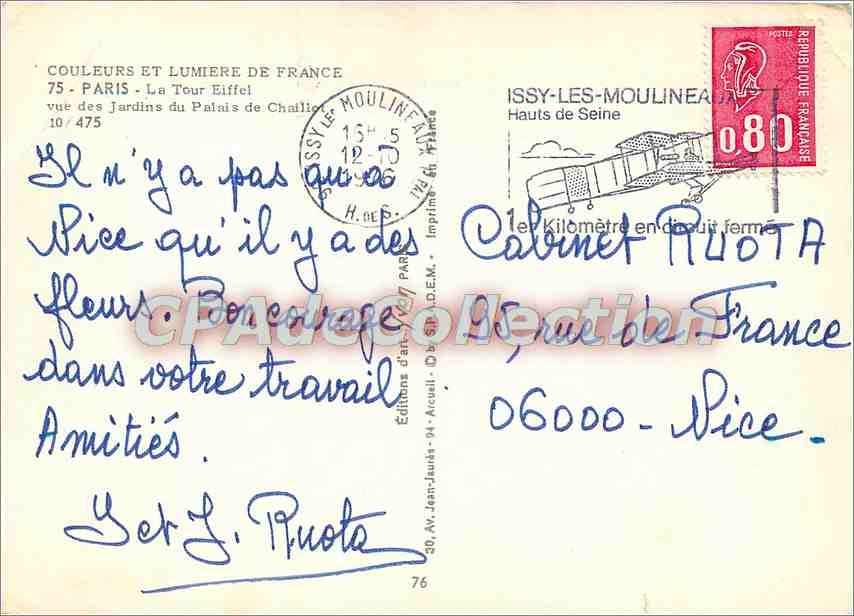 COULEURS ET LUMIERE DE FRANCE
75 - PARIS - La Tour Eiffel
vue des Jardins du Palais de Chaillot
10/475
Il n'y a pas qu'à
Nice qu'il y a des
fleurs. Bon courage
dans votre travail
Amitiés.
J. Ruota
ISSY LES MOULINEAUX PAL
12-10
H. DE S.
ISSY-LES-MOULINEAUX
Hauts de Seine
1er Kilomètre en circuit fermé
POSTES
REPUBLIQUE FRANÇAISE
0,80
Cabinet RUOTA
95, rue de France
06000 - Nice.
Éditions d'art PARIS
30, Av. Jean-Jaurès - 94 - Arcueil - © by S.P.A.D.E.M. - Imprimé en France
76
CPAdeCollection